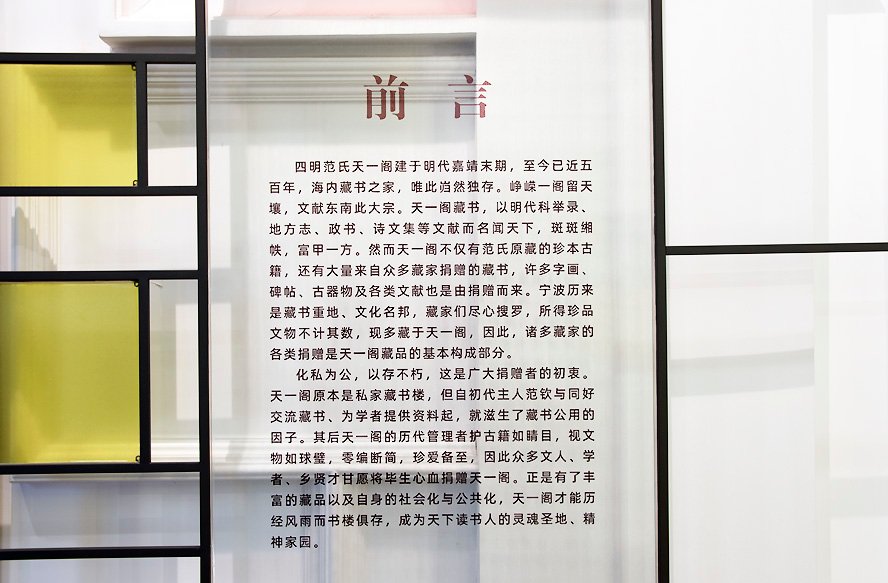 前言
四明范氏天一阁建于明代嘉靖末期，至今已近五
百年，海内藏书之家，唯此岿然独存。峥嵘一阁留天
壤，文献东南此大宗。天一阁藏书，以明代科举录、
地方志、政书、诗文集等文献而名闻天下，斑斑缃
帙，富甲一方。然而天一阁不仅有范氏原藏的珍本古
籍，还有大量来自众多藏家捐赠的藏书，许多字画、
碑帖、古器物及各类文献也是由捐赠而来。宁波历来
是藏书重地、文化名邦，藏家们尽心搜罗，所得珍品
文物不计其数，现多藏于天一阁，因此，诸多藏家的
各类捐赠是天一阁藏品的基本构成部分。
化私为公，以存不朽，这是广大捐赠者的初衷。
天一阁原本是私家藏书楼，但自初代主人范钦与同好
交流藏书、为学者提供资料起，就滋生了藏书公用的
因子。其后天一阁的历代管理者护古籍如睛目，视文
物如球璧，零编断简，珍爱备至，因此众多文人、学
者、乡贤才甘愿将毕生心血捐赠天一阁。正是有了丰
富的藏品以及自身的社会化与公共化，天一阁才能历
经风雨而书楼俱存，成为天下读书人的灵魂圣地、精
神家园。